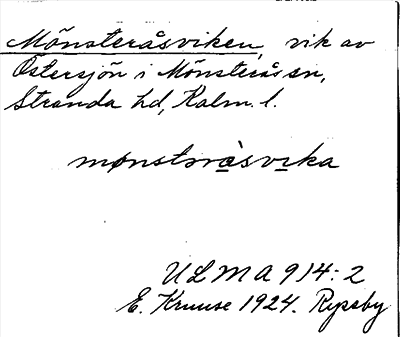 Mönsteråsviken, vik av
Östersjön i Mönsterås sn,
Stranda hd, Kalm. l.
mønstərà̱svi̱ka
ULMA 914:2
E. Kruuse 1924. Rypsby